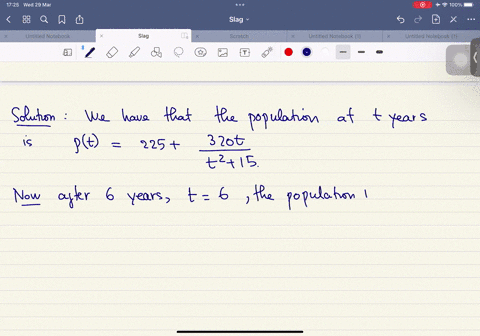 17:28 Wed 29 Mar
100%
Slag
Untitled Notebook
Slag
Scratch
Untitled Notebook (3)
Untitled Notebook (1)
Solution : We have that the population at t years
is p(t) = 225 + 320t / t²+15.
Now after 6 years, t = 6 , the population